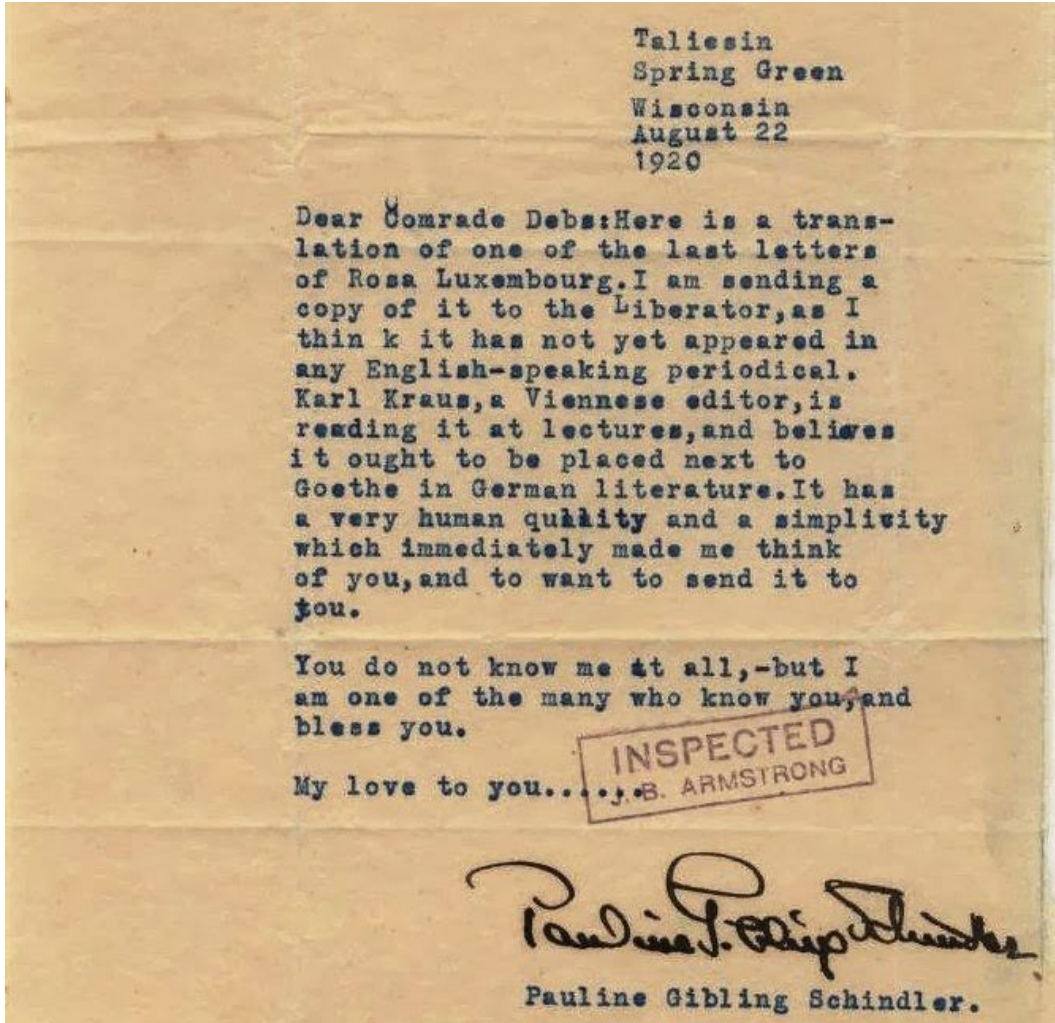 Taliesin
Spring Green
Wisconsin
August 22
1920
Dear Comrade Debs:Here is a trans-
lation of one of the last letters
of Rosa Luxembourg.I am sending a
copy of it to the Liberator,as I
thin k it has not yet appeared in
any English-speaking periodical.
Karl Kraus,a Viennese editor,is
reading it at lectures,and believes
it ought to be placed next to
Goethe in German literature.It has
a very human quality and a simplicity
which immediately made me think
of you,and to want to send it to
you.
You do not know me at all,-but I
am one of the many who know you,and
bless you.
INSPECTED
J. B. ARMSTRONG
My love to you......
Pauline G. Schindler
Pauline Gibling Schindler.